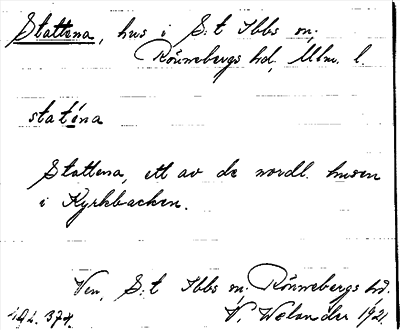 Stattena, hus i S:t Ibbs sn,
Rönnebergs hd, Mlm. l.
staténa
Stattena, ett av de nordl. husen
i Kyrkbacken.
Ven, S:t Ibbs sn. Rönnebergs hd.
V. Welander 1921.